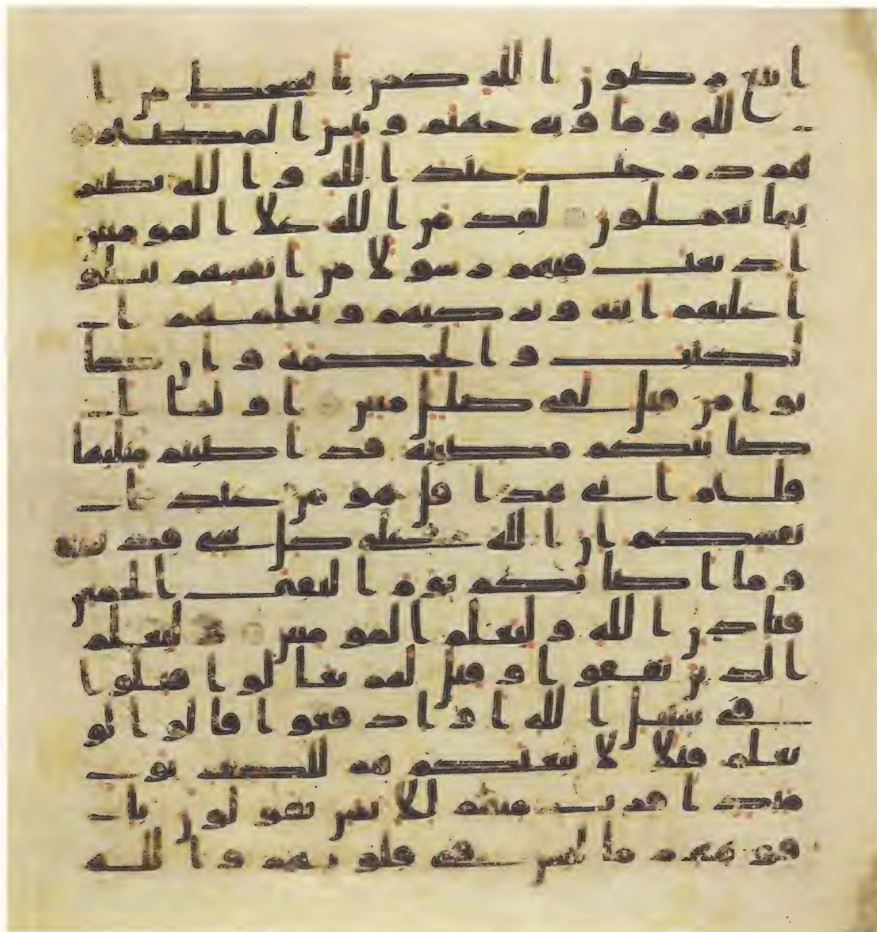 اتبع رضون الله كمن با بسخط من ا
لله وماويه جهنم وبئس المصير
هم درجت عند الله والله بصير
بما يعملون لقد من الله علا المومنين
اذ بعث فيهم رسولا من انفسهم يتلو
ا عليهم ايته ويزكيهم ويعلمهم ا
لكتب والحكمة وان كا
نوا من قبل لفى ضلل مبين اولما ا
صابتكم مصيبة قد اصبتم مثليها
قلتم انى هذا قل هو من عند ا
نفسكم ان الله على كل شى قدير
وما اصابكم يوم التقى الجمعن
فباذن الله وليعلم المومنين وليعلم
الذين نفقوا وقيل لهم تعالوا قتلوا
فى سبيل الله او ادفعوا قالوا لو
نعلم قتلا لاتبعنكم هم للكفر يو
مئذ اقرب منهم للايمن يقولون با
فوههم ما ليس فى قلوبهم والله